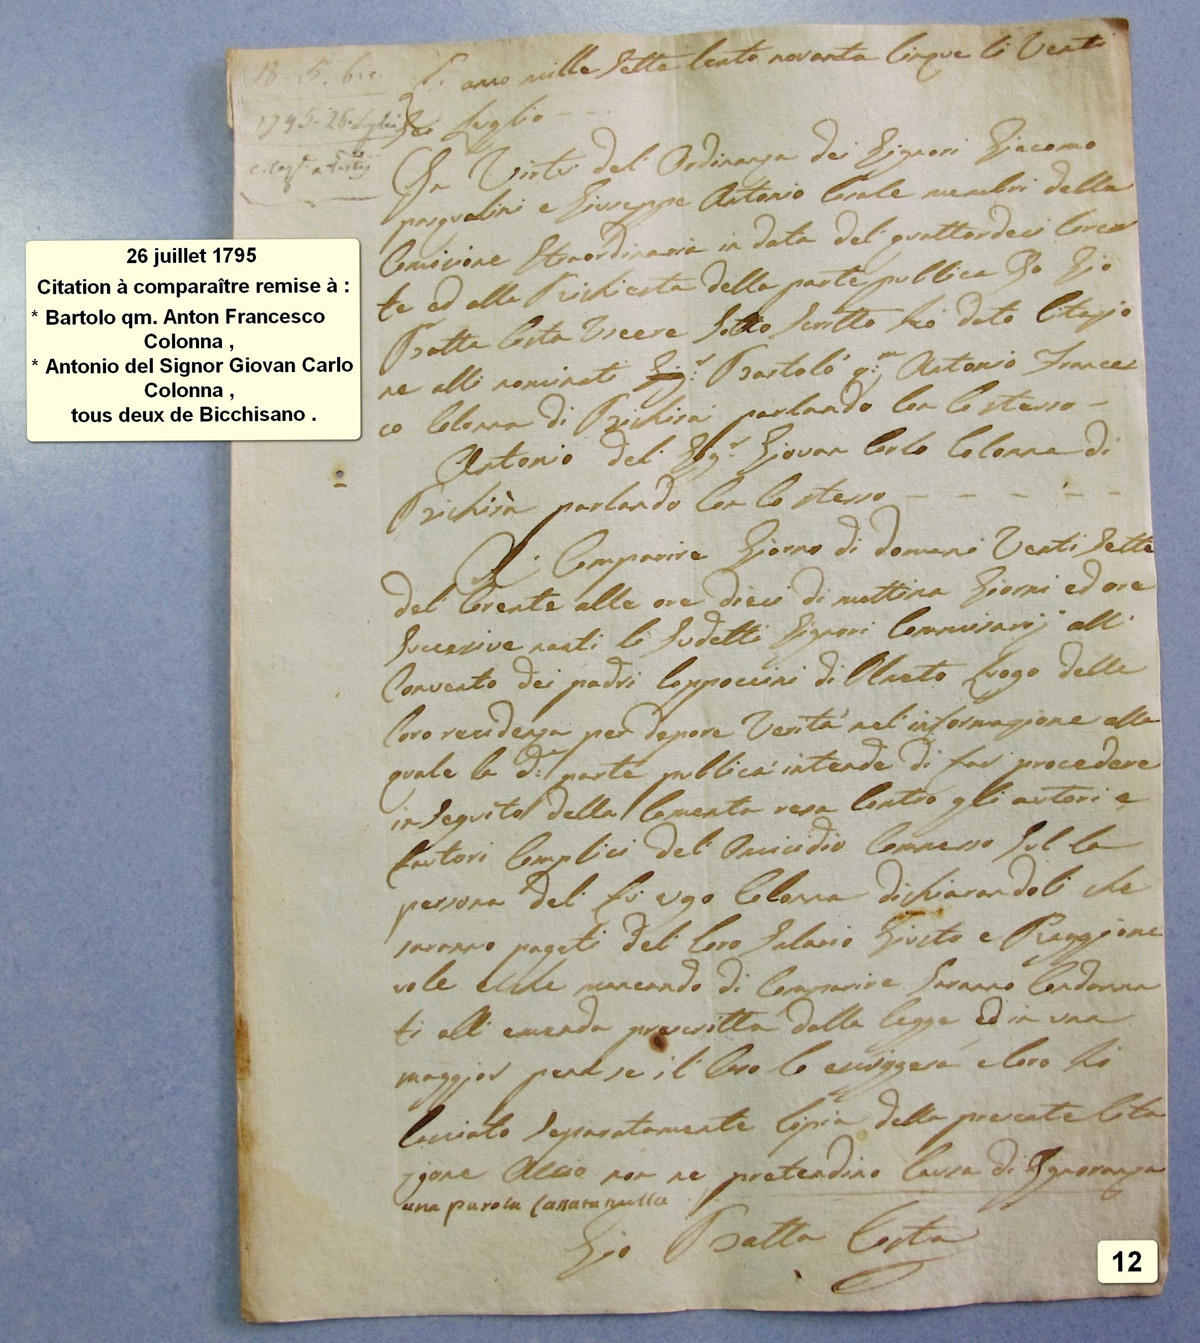 26 juillet 1795
Citation à comparaître remise à :
* Bartolo qm. Anton Francesco
Colonna ,
* Antonio del Signor Giovan Carlo
Colonna ,
tous deux de Bicchisano .
1795. 26. Luglio
L'anno mille Sette Cento novanta Cinque li Venti
Sei Luglio
In Virtù del' Ordinanza dei Signori Giacomo
pasqualini e Giuseppe Antonio Casale membri della
Comisione Straordinaria in data del' quattordeci Coren
te ed alla Richiesta della parte publica Io Gio
Batta Costa Usciere Sotto Scritto hò dato Citazio
ne alli nominati Sig.r Bartolo q.m Antonio Frances
co Colonna di Bichisà parlando Con Lo stesso
Antonio del' Sig.r Giovan Carlo Colonna di
Bichisà parlando Con Lo stesso
Di Comparire Giorno di domani Venti Sette
del Corente alle ore dieci di mattina Giorni ed ore
Sucessive nanti li Sudetti Signori Commissarj all'
Convento dei padri Cappoccini di Olmeto Luogo della
loro residenza per depore Verità nel' informazione alla
quale la d.a parte publica intende di far procedere
in Seguito della lamenta resa Contro gli autori e
fautori Complici del' Omicidio Commesso Sul la
persona del' fù ugo Colonna dichiarandoli che
saranno pagati del' loro Salario Giusto e Raggione
vole e che mancando di Comparire Saranno Condanna
ti all' emenda prescritta dalla legge ed in una
maggior pena se il' Caso lo essiggerà e loro hò
lasciato Separatamente Copia della presente Cita
zione Acciò non ne pretendino Causa di Ignoranza
una parola Cassata nulla
Gio Batta Costa
12